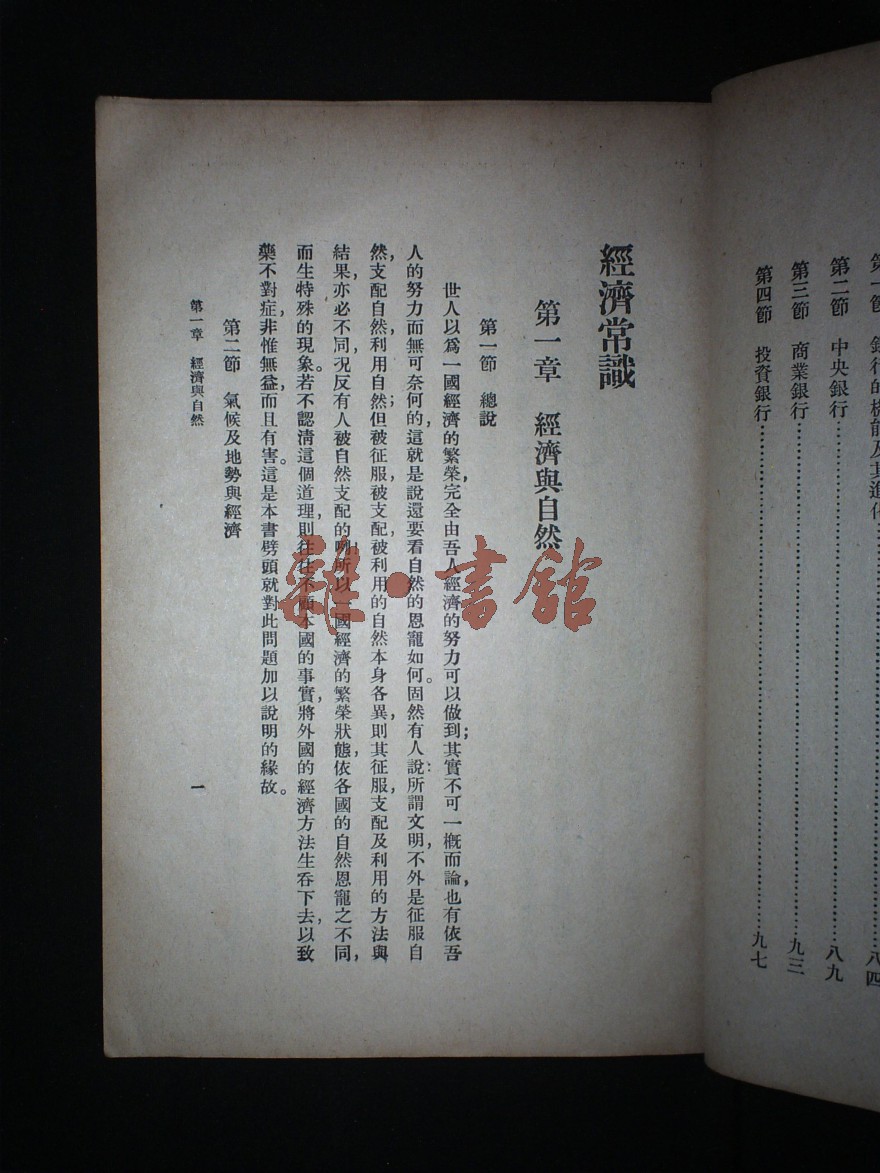 第一節　銀行的機能及其進化……八四
第二節　中央銀行……八九
第三節　商業銀行……九三
第四節　投資銀行……九七
經濟常識
第一章　經濟與自然
第一節　總說
世人以爲一國經濟的繁榮，完全由吾人經濟的努力可以做到；其實不可一概而論，也有依吾
人的努力而無可奈何的，這就是說還要看自然的恩寵如何。固然有人說：所謂文明，不外是征服自
然，支配自然，利用自然；但被征服，被支配，被利用的自然本身各異，則其征服，支配及利用的方法與
結果，亦必不同，况反有人被自然支配的咧！所以一國經濟的繁榮狀態，依各國的自然恩寵之不同，
而生特殊的現象。若不認清這個道理，則往往不顧本國的事實，將外國的經濟方法生吞下去，以致
藥不對症，非惟無益，而且有害。這是本書劈頭就對此問題加以說明的緣故。
第二節　氣候及地勢與經濟
第一章　經濟與自然
一
雜·書館